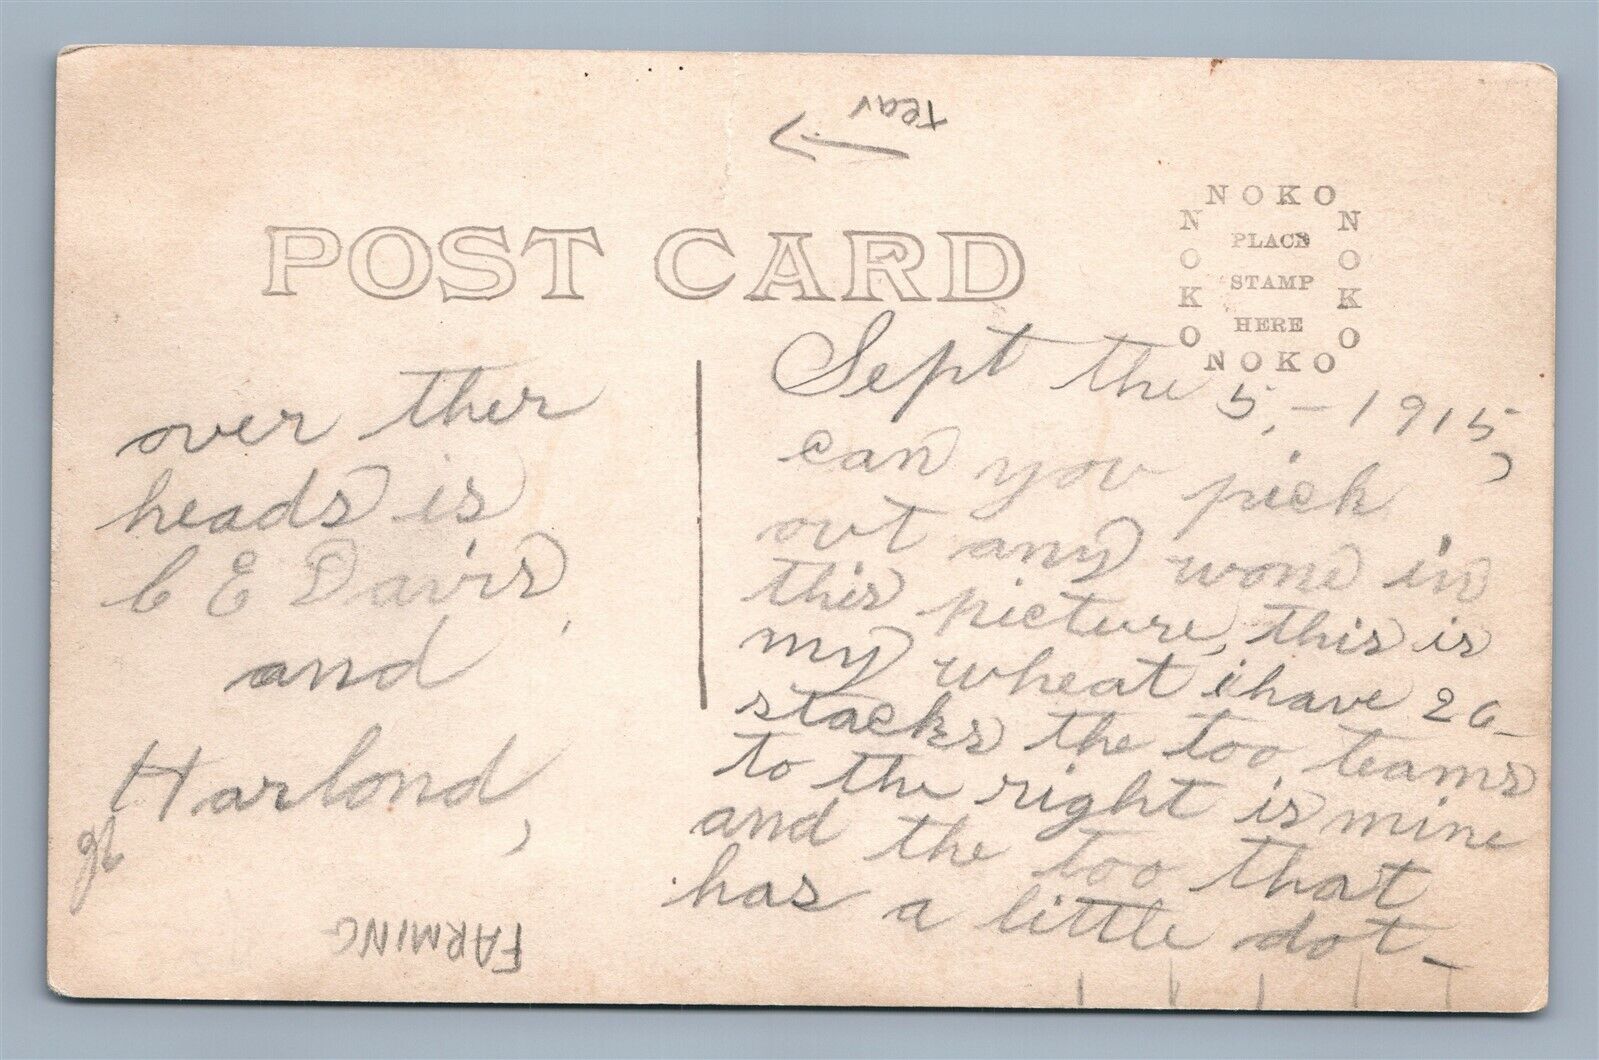 tear
POST CARD
NOKO
NOKO
NOKO
NOKO
PLACE
STAMP
HERE
Sept the 5, - 1915,
can you pick
out any wone in
this picture, this is
my wheat i have 26-
stacks the too teams
to the right is mine
and the too that
has a little dot-
over ther
heads is
C E Davis,
and
Harlond,
FARMING